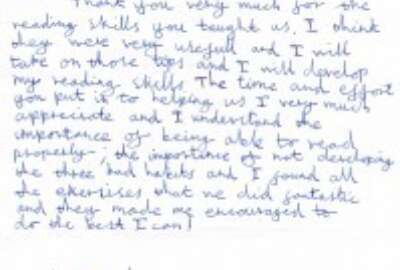 Thank you very much for the
reading skills you taught us. I think
they were very usefull and I will
take on those tips and I will develop
my reading skills. The time and effort
you put in to helping us I very much
appreciate and I understand the
importance of being able to read
properly, the importance of not developing
the three bad habits and I found all
the exercises that we did fantastic
and they made me encouraged to
do the best I can!